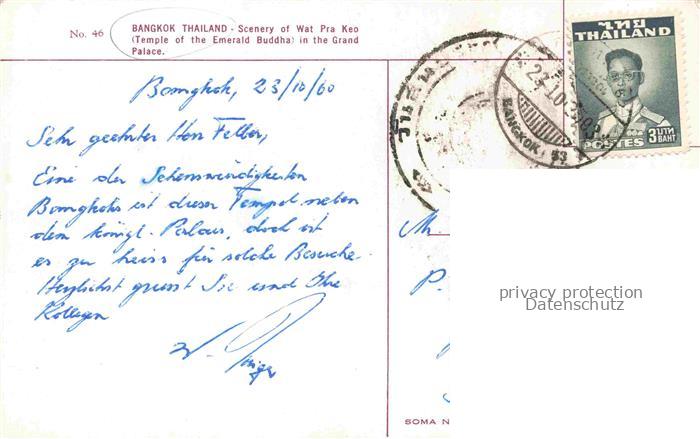 No. 46
BANGKOK THAILAND - Scenery of Wat Pra Keo
(Temple of the Emerald Buddha) in the Grand
Palace.
Bamgkok, 23/10/60
Sehr geehrter Herr Feller,
Eine der Sehenswürdigkeiten
Bamgkoks ist dieser Tempel neben
dem königl. Palais, doch ist
es zu heiss für solche Besuche.
Herzlichst grüsst Sie und Ihre
Kollegen
W.
ไทย
THAILAND
3 บาท
BAHT
POSTES
BANGKOK
Mr.
P.
privacy protection
Datenschutz
SOMA N